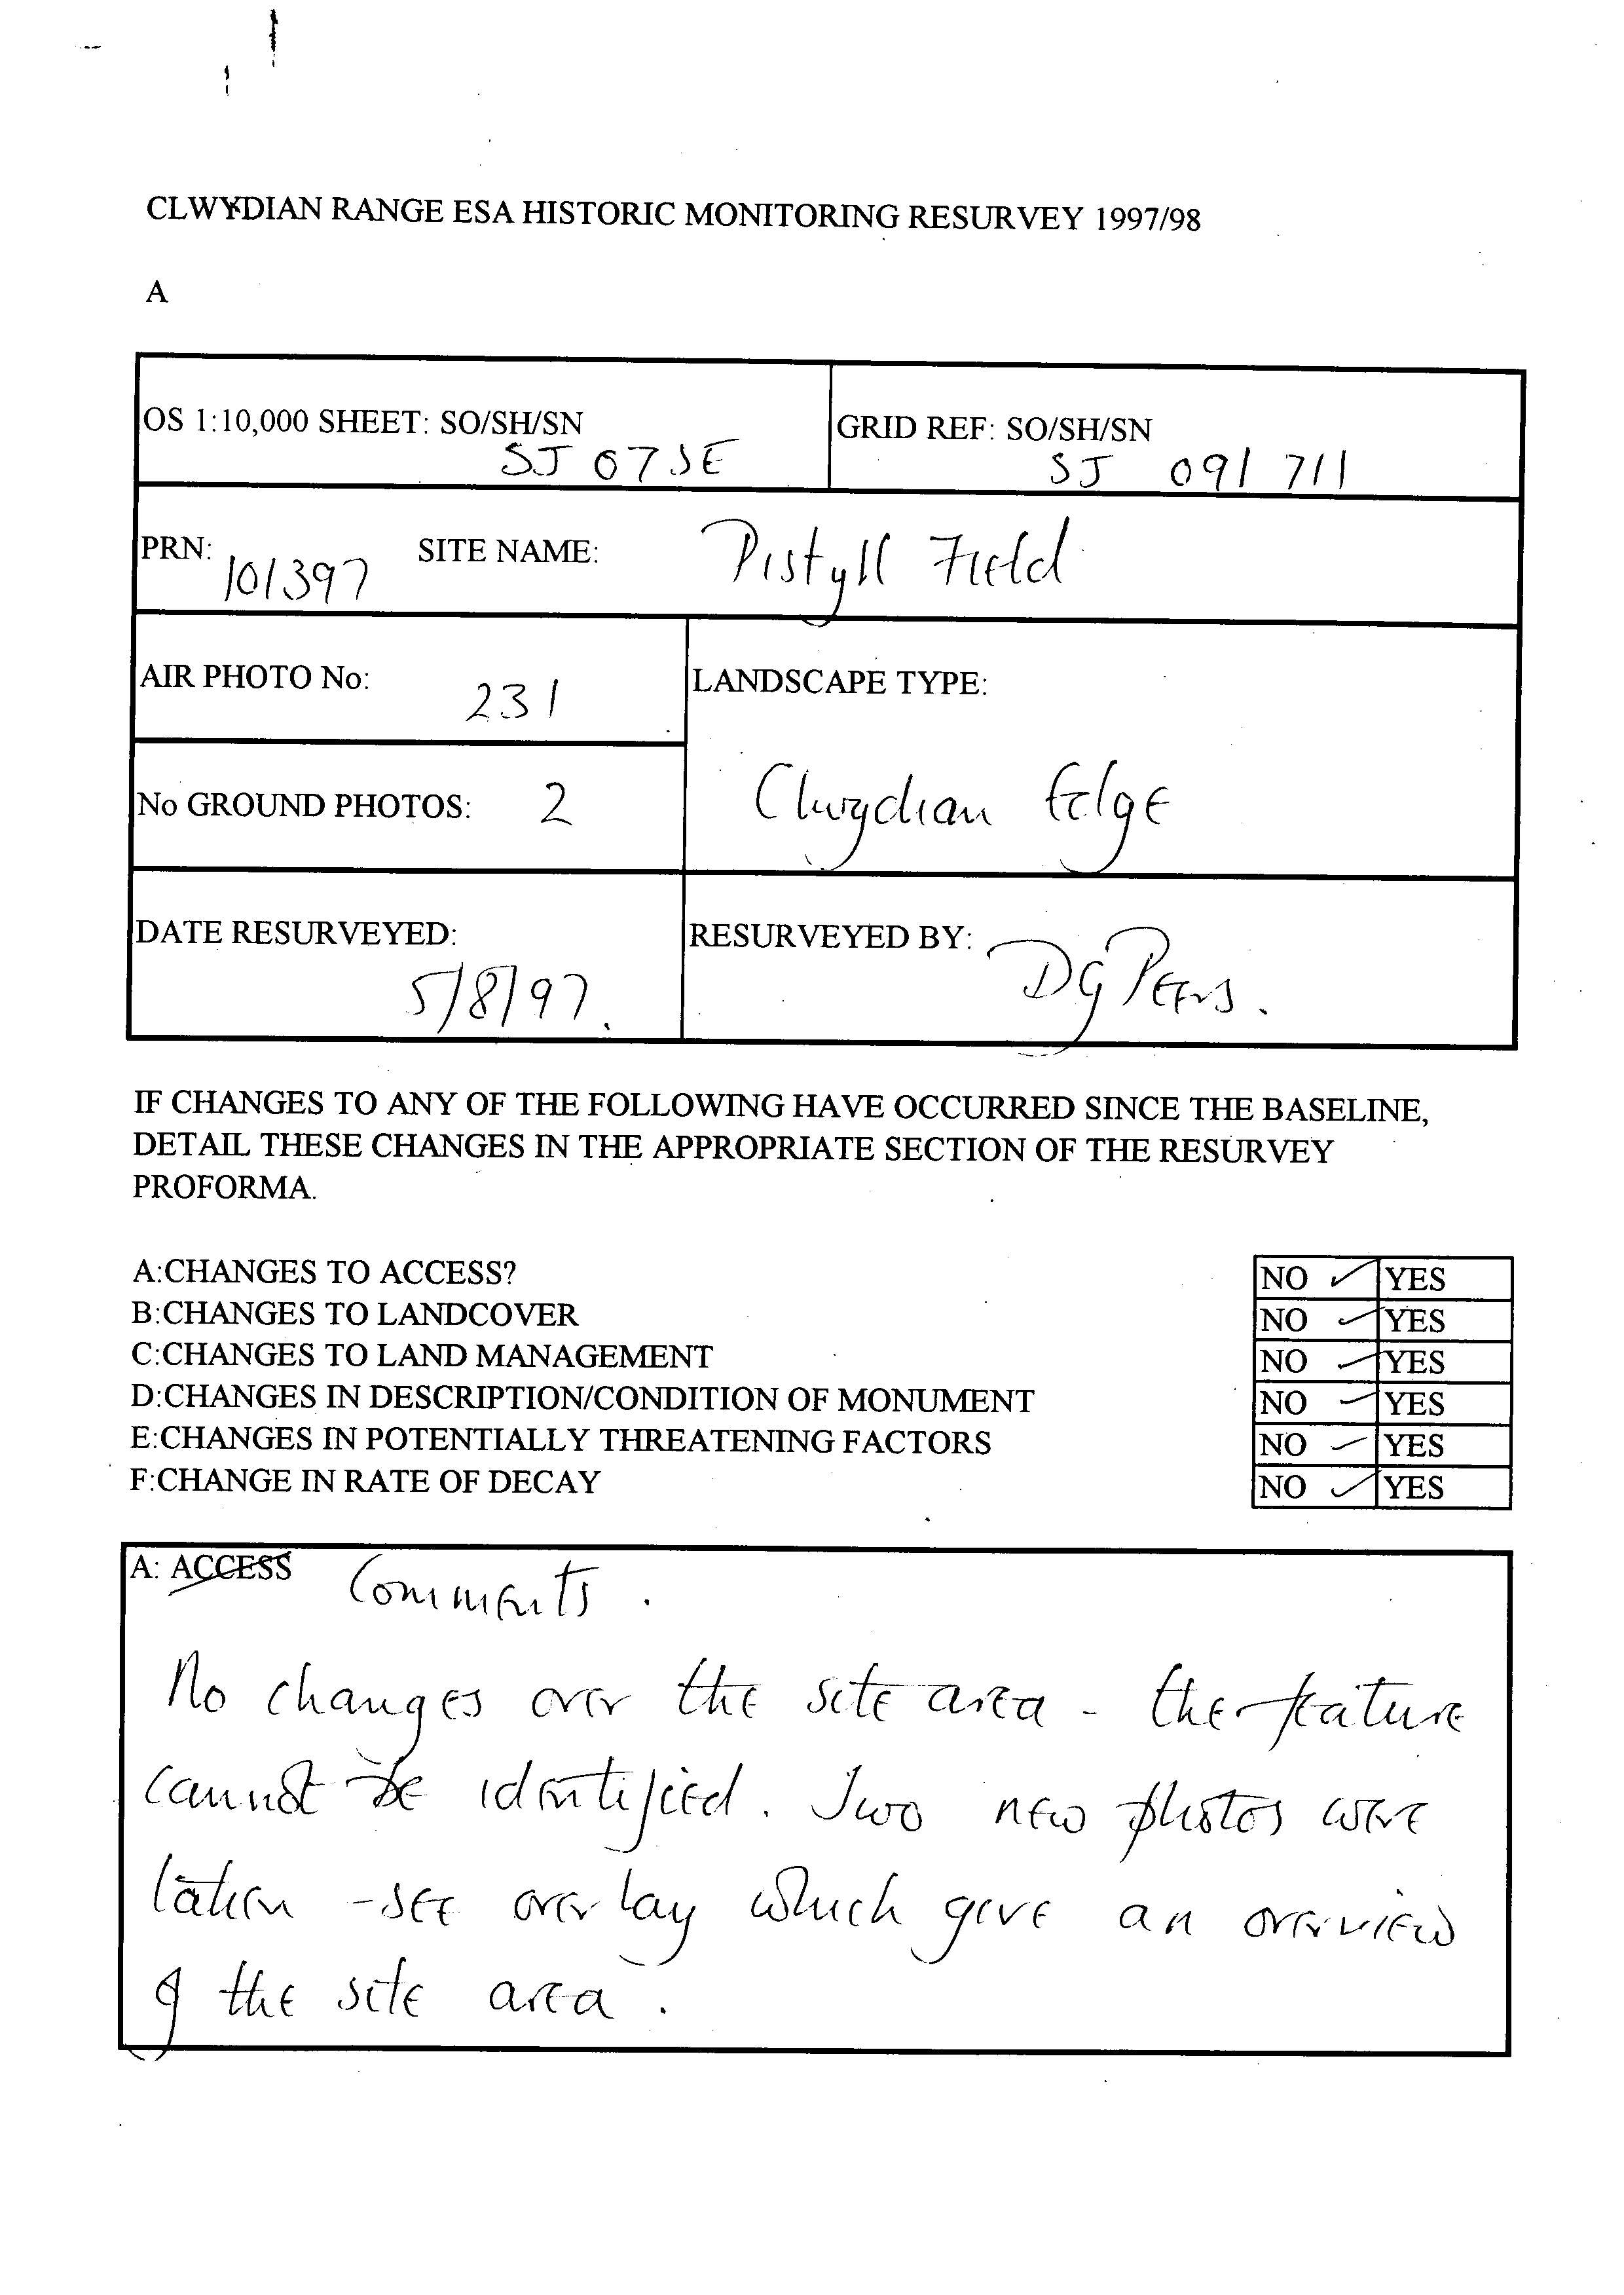 CLWYDIAN RANGE ESA HISTORIC MONITORING RESURVEY 1997/98
A
OS 1:10,000 SHEET: SO/SH/SN
SJ 07SE
GRID REF: SO/SH/SN
SJ 091 711
PRN: 101397 SITE NAME: Pistyll Field
AIR PHOTO No: 231
LANDSCAPE TYPE:
Clwydian Edge
No GROUND PHOTOS: 2
DATE RESURVEYED:
5/8/97.
RESURVEYED BY: DG Peers.
IF CHANGES TO ANY OF THE FOLLOWING HAVE OCCURRED SINCE THE BASELINE,
DETAIL THESE CHANGES IN THE APPROPRIATE SECTION OF THE RESURVEY
PROFORMA.
A:CHANGES TO ACCESS? NO ✓ YES
B:CHANGES TO LANDCOVER NO ✓ YES
C:CHANGES TO LAND MANAGEMENT NO ✓ YES
D:CHANGES IN DESCRIPTION/CONDITION OF MONUMENT NO ✓ YES
E:CHANGES IN POTENTIALLY THREATENING FACTORS NO ✓ YES
F:CHANGE IN RATE OF DECAY NO ✓ YES
A: ACCESS Comments.
No changes over the site area - the feature
cannot be identified. Two new photos were
taken - see overlay which give an overview
of the site area.